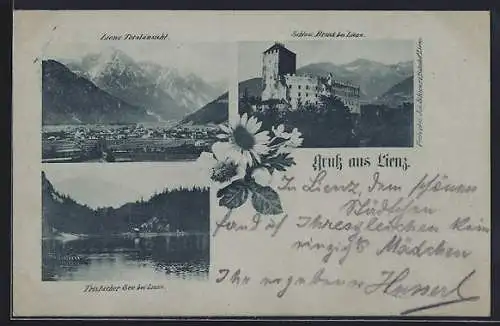 Lienz Totalansicht.
Schloss Bruck bei Lienz.
Gruß aus Lienz.
In Lienz, dem schönen
Städtchen
fand ich Ihresgleichen kein
einzig's Mädchen
Ihr ergebener Husserl
Tristacher See bei Lienz.